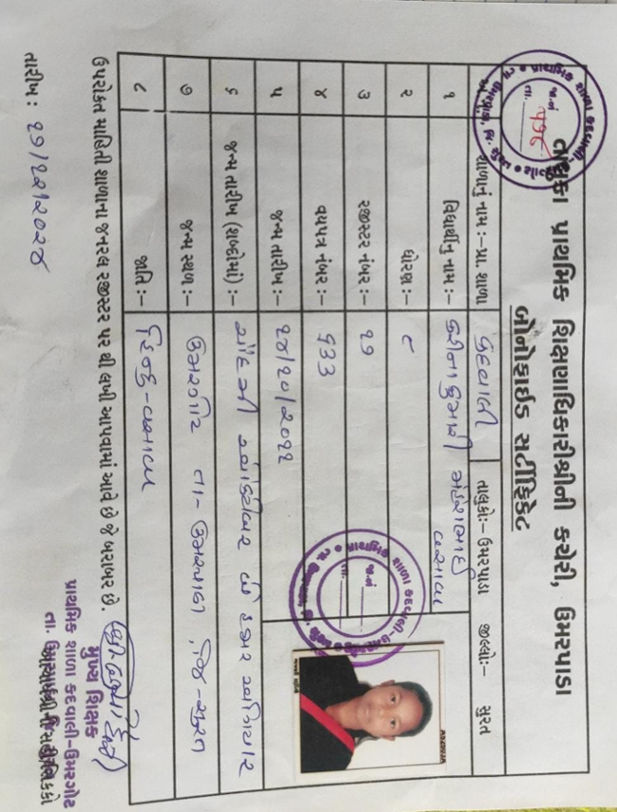 તાલુકા પ્રાથમિક શિક્ષણાધિકારીશ્રીની કચેરી, ઉમરપાડા
બોનોફાઈડ સર્ટીફિકેટ
શાળાનું નામ :- પ્રા. શાળા કદવાલી તાલુકો:- ઉમરપાડા જીલ્લો:- સુરત
૧ વિદ્યાર્થીનું નામ :- કરીનાકુમારી મહેશભાઈ વસાવા
૨ ધોરણ :- ૮
૩ રજીસ્ટર નંબર :- ૨૭
૪ વયપત્ર નંબર :- ૬૩૩
૫ જન્મ તારીખ :- ૧૪/૧૦/૨૦૧૧
૬ જન્મ તારીખ (શબ્દોમાં) :- ચૌદમી ઓક્ટોબર બે હજાર અગિયાર
૭ જન્મ સ્થળ :- ઉમરગોટ તા- ઉમરપાડા જિ- સુરત
૮ જાતિ :- હિન્દુ-વસાવા
ઉપરોક્ત માહિતી શાળાના જનરલ રજીસ્ટર પર થી લખી આપવામાં આવે છે જે બરાબર છે.
તારીખ :
મુખ્ય શિક્ષક
પ્રાથમિક શાળા કદવાલી-ઉમરગોટ